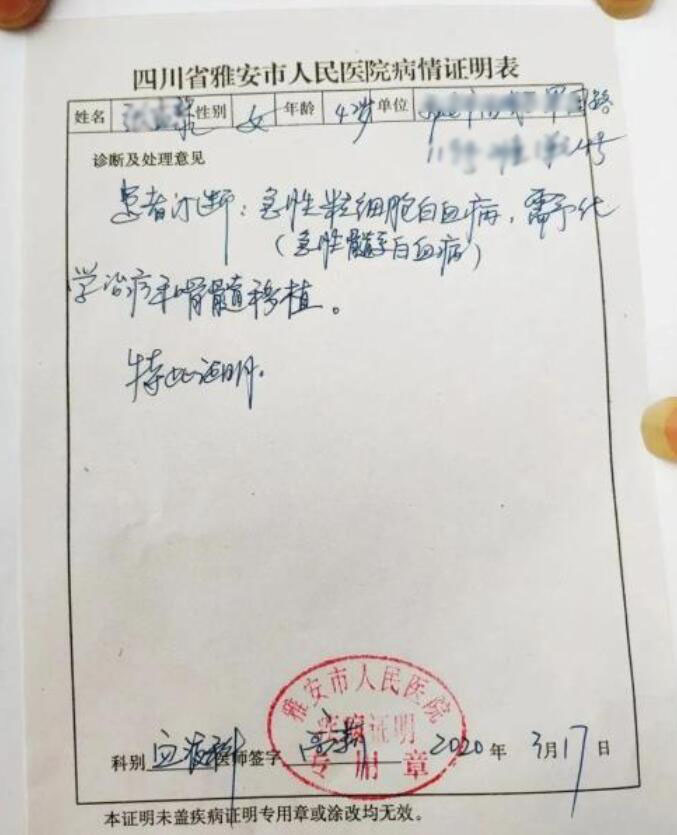 四川省雅安市人民医院病情证明表
姓名 性别 女 年龄 42岁 单位
4号
诊断及处理意见
患者诊断：急性粒细胞白血病，需予化
（急性髓系白血病）
学治疗和骨髓移植。
特此证明.
雅安市人民医院
证明
专用章
科别 血液科 医师签字 2020 年 3月17日
本证明未盖疾病证明专用章或涂改均无效。